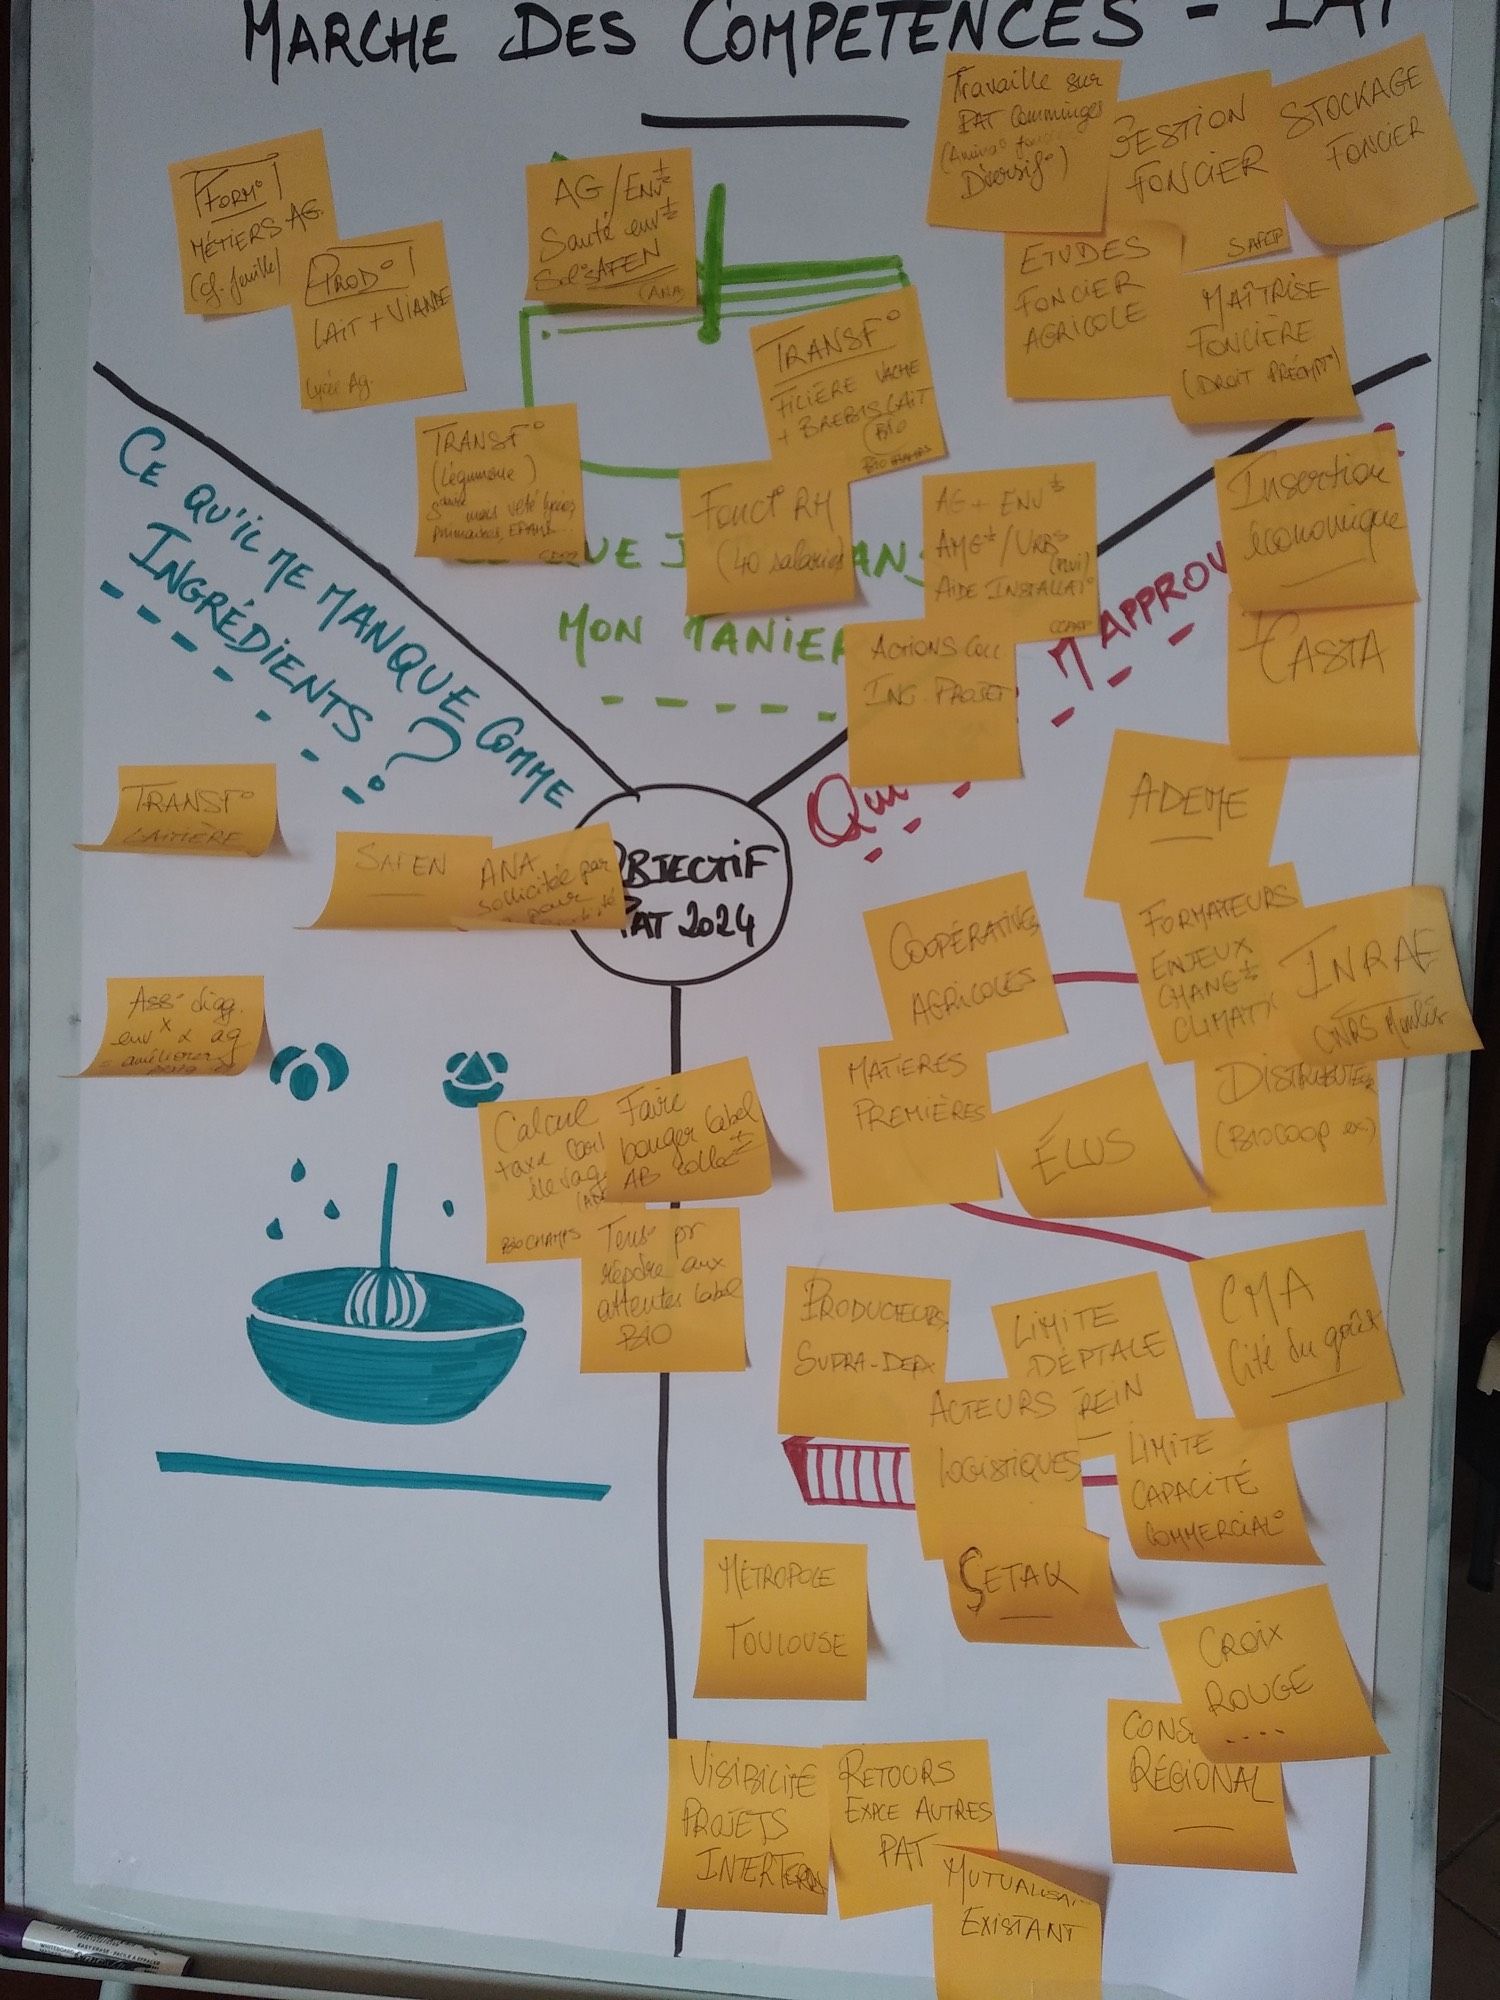 MARCHÉ DES COMPÉTENCES - PAT
FORM°
MÉTIERS AG.
(cf. feuille)
PROD°
LAIT + VIANDE
Lycée Ag.
AG/ENVt
Santé envt
SAFEN
(ANA)
Travaille sur
PAT Comminges
Diversif°)
GESTION
FONCIER
SAFER
STOCKAGE
FONCIER
ETUDES
FONCIER
AGRICOLE
MAÎTRISE
FONCIÈRE
(DROIT PRÉEMPT°)
TRANSF°
FILIÈRE VACHE
+ BREBIS LAIT
(BIO
BIO CHAMPS
TRANSF°
(Légumerie)
primaires, EPAHD...
Fonct° RH
(40 salariés)
AG + ENVt
AMGt/URBs
(PLUi)
AIDE INSTALLAT°
ACTIONS COLL
ING. PROJET
MON PANIER
CE QU'IL ME MANQUE COMME
INGRÉDIENTS ?
QUI
M'APPROV
OBJECTIF
PAT 2024
Insertion
économique
ICASTA
ADEME
TRANSF°
LAITIÈRE
SAFEN
ANA
sollicitée par
pour
COOPÉRATIVES
AGRICOLES
FORMATEURS
ENJEUX
CHANGt
CLIMATX
INRAE
CNRS Moulis
MATIERES
PREMIÈRES
ÉLUS
DISTRIBUTEURS
(BIOCOOP ex)
Ass° diag.
envx & ag
= améliorer
Calcul
taxe
BIO CHAMPS
Faire
bouger label
AB collect
Tens° pr
répdre aux
attentes label
BIO
PRODUCTEURS
SUPRA-DEPX
LIMITE
DÉPTALE
FREIN
CMA
Cité du goût
ACTEURS
LOGISTIQUES
LIMITE
CAPACITÉ
COMMERCIAL°
MÉTROPOLE
TOULOUSE
CETAK
CROIX
ROUGE
....
CONS
RÉGIONAL
VISIBILITÉ
PROJETS
INTERTERR
RETOURS
EXPCE AUTRES
PAT
MUTUALISA
EXISTANT